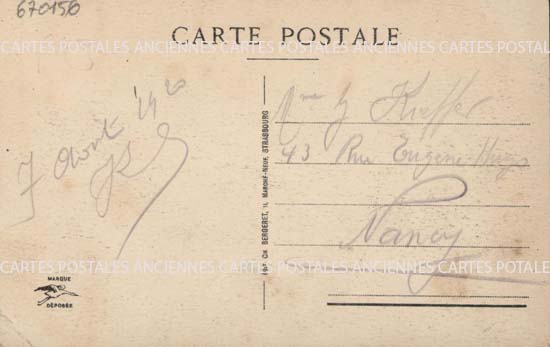 670156
CARTE POSTALE
CARTES POSTALES ANCIENNES CARTES POSTALES ANCIENNES CARTES POSTALES
7 Août 1920
Mme
43 Rue Eugène Hugo
Nancy
CH BERGERET, 11, MARCHÉ-NEUF, STRASBOURG
CARTES POSTALES ANCIENNES CARTES POSTALES ANCIENNES CARTES POTALES
MARQUE
DÉPOSÉE